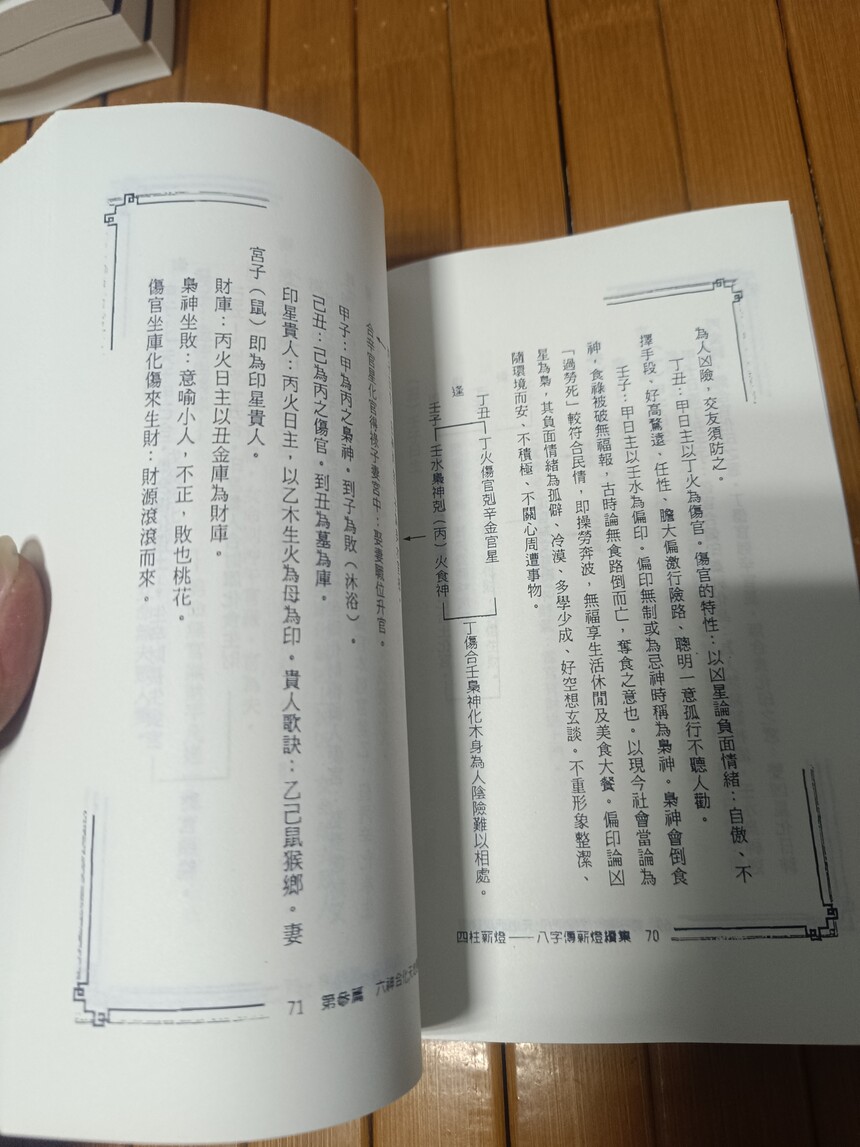 為人凶險，交友須防之。
丁丑：甲日主以丁火為傷官。傷官的特性：以凶星論負面情緒：自傲、不
擇手段、好高騖遠、任性、膽大偏激行險路、聰明一意孤行不聽人勸。
壬子：甲日主以壬水為偏印。偏印無制或為忌神時稱為梟神。梟神會倒食
神，食祿被破無福報，古時論無食路倒而亡，奪食之意也。以現今社會當論為
「過勞死」較符合民情，即操勞奔波，無福享生活休閒及美食大餐。偏印論凶
星為梟，其負面情緒為孤僻、冷漠、多學少成、好空想玄談。不重形象整潔、
隨環境而安、不積極、不關心周遭事物。
丁丑 丁火傷官剋辛金官星
逢
壬子 壬水梟神剋（丙）火食神
丁傷合壬梟神化木身為人陰險難以相處。
四柱薪燈——八字傳薪燈續集 70
合辛官星化官得祿子妻宮中：娶妻職位升官。
甲子：甲為丙之梟神。到子為敗（沐浴）。
己丑：己為丙之傷官。到丑為墓為庫。
印星貴人：丙火日主，以乙木生火為母為印。貴人歌訣：乙己鼠猴鄉。妻
宮子（鼠）即為印星貴人。
財庫：丙火日主以丑金庫為財庫。
梟神坐敗：意喻小人，不正，敗也桃花。
傷官坐庫化傷來生財：財源滾滾而來。
71 第參篇 六神合化天